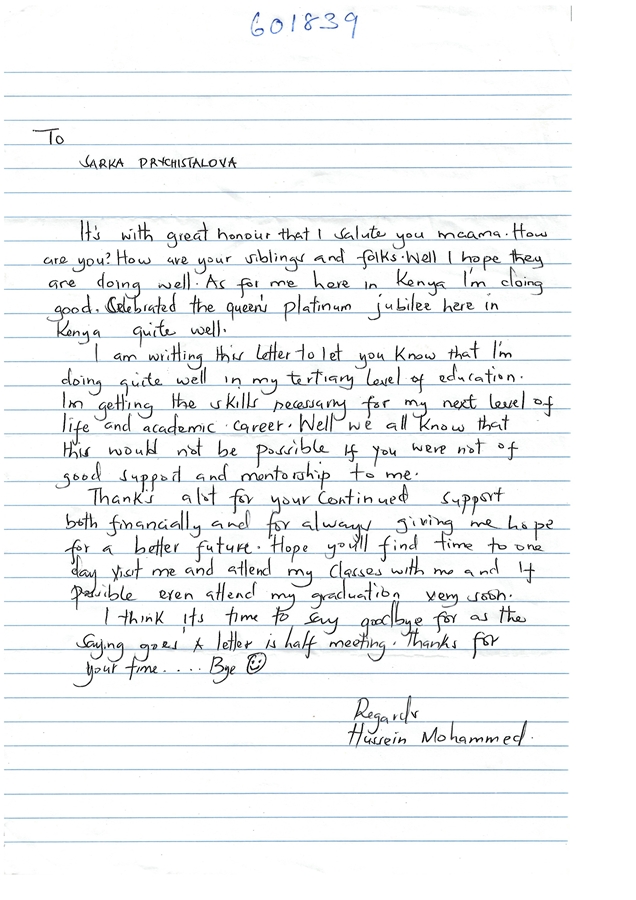 601839
To
SARKA PRYCHISTALOVA
It's with great honour that I salute you maama. How
are you? How are your siblings and folks. Well I hope they
are doing well. As for me here in Kenya I'm doing
good. Celebrated the queen's platinum jubilee here in
Kenya quite well.
I am writting this letter to let you know that I'm
doing quite well in my tertiary level of education.
Im getting the skills necessary for my next level of
life and academic career. Well we all know that
this would not be possible if you were not of
good support and mentorship to me.
Thanks alot for your continued support
both financially and for always giving me hope
for a better future. Hope you'll find time to one
day visit me and attend my classes with me and if
possible even attend my graduation very soon.
I think its time to say goodbye for as the
saying goes 'A letter is half meeting. Thanks for
your time.... Bye ☺
Regards
Hussein Mohammed.